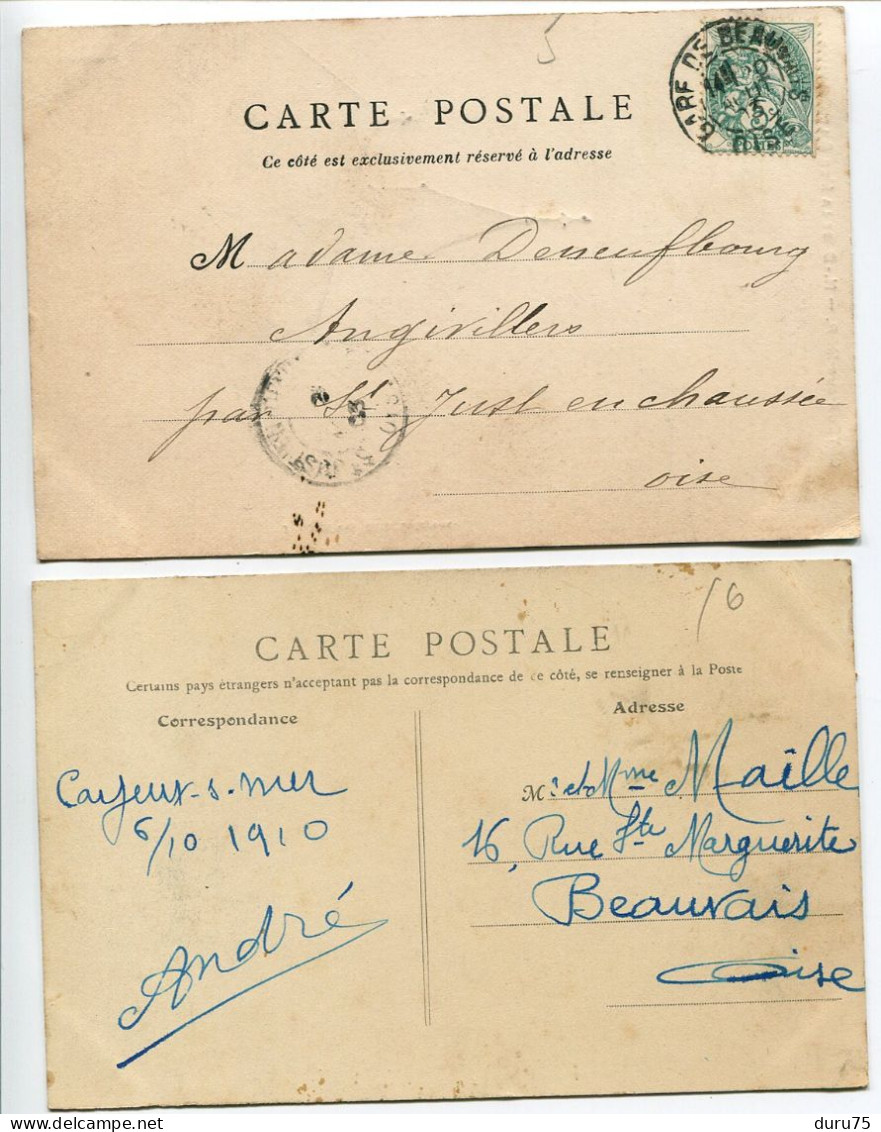 5
CARTE POSTALE
Ce côté est exclusivement réservé à l'adresse
GARE DE BEAUVAIS
OISE
Madame Deneufbourg
Angivillers
par St Just en chaussée
oise
16
CARTE POSTALE
Certains pays étrangers n'acceptent pas la correspondance de ce côté, se renseigner à la Poste
Correspondance
Adresse
Cayeux-s-mer
6/10 1910
André
M. et Mme Maille
16, Rue Ste Marguerite
Beauvais
Oise
delcampe.net
duru75